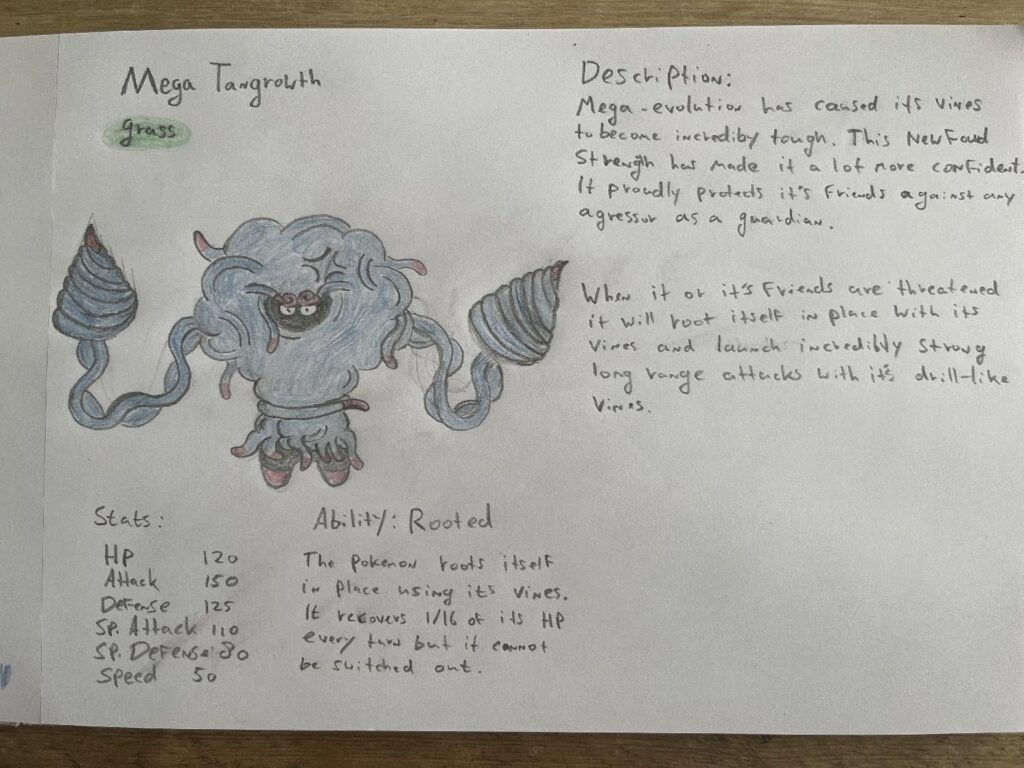 Mega Tangrowth
grass
Description:
Mega-evolution has caused its vines
to become incrediby tough. This Newfoud
Strength has made it a lot more confident.
It proudly protects it's friends against any
agressor as a guardian.
When it or it's friends are threatened
it will root itself in place with its
vines and launch incredibly strong
long range attacks with it's drill-like
vines.
Stats:
HP 120
Attack 150
Defense 125
Sp. Attack 110
Sp. Defense: 80
Speed 50
Ability: Rooted
The pokemon roots itself
in place using it's vines.
It recovers 1/16 of its HP
every turn but it cannot
be switched out.